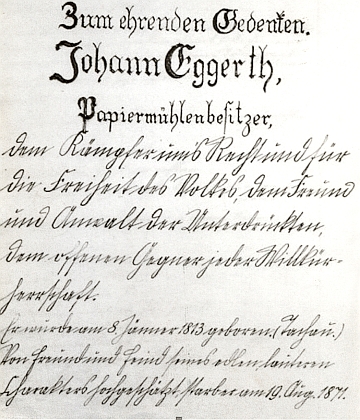 Zum ehrenden Gedenken.
Johann Eggerth,
Papiermühlenbesitzer,
dem Kämpfer um's Recht und für
die Freiheit des Volkes, dem Freund
und Anwalt der Unterdrückten,
dem offenen Gegner jeder Willkür-
herrschaft.
Er wurde am 8. Jänner 1813 geboren. (Tachau.)
Von Freund und Feind seines edlen, lauteren
Charakters hochgeschätzt, starb er am 19. Aug. 1871.